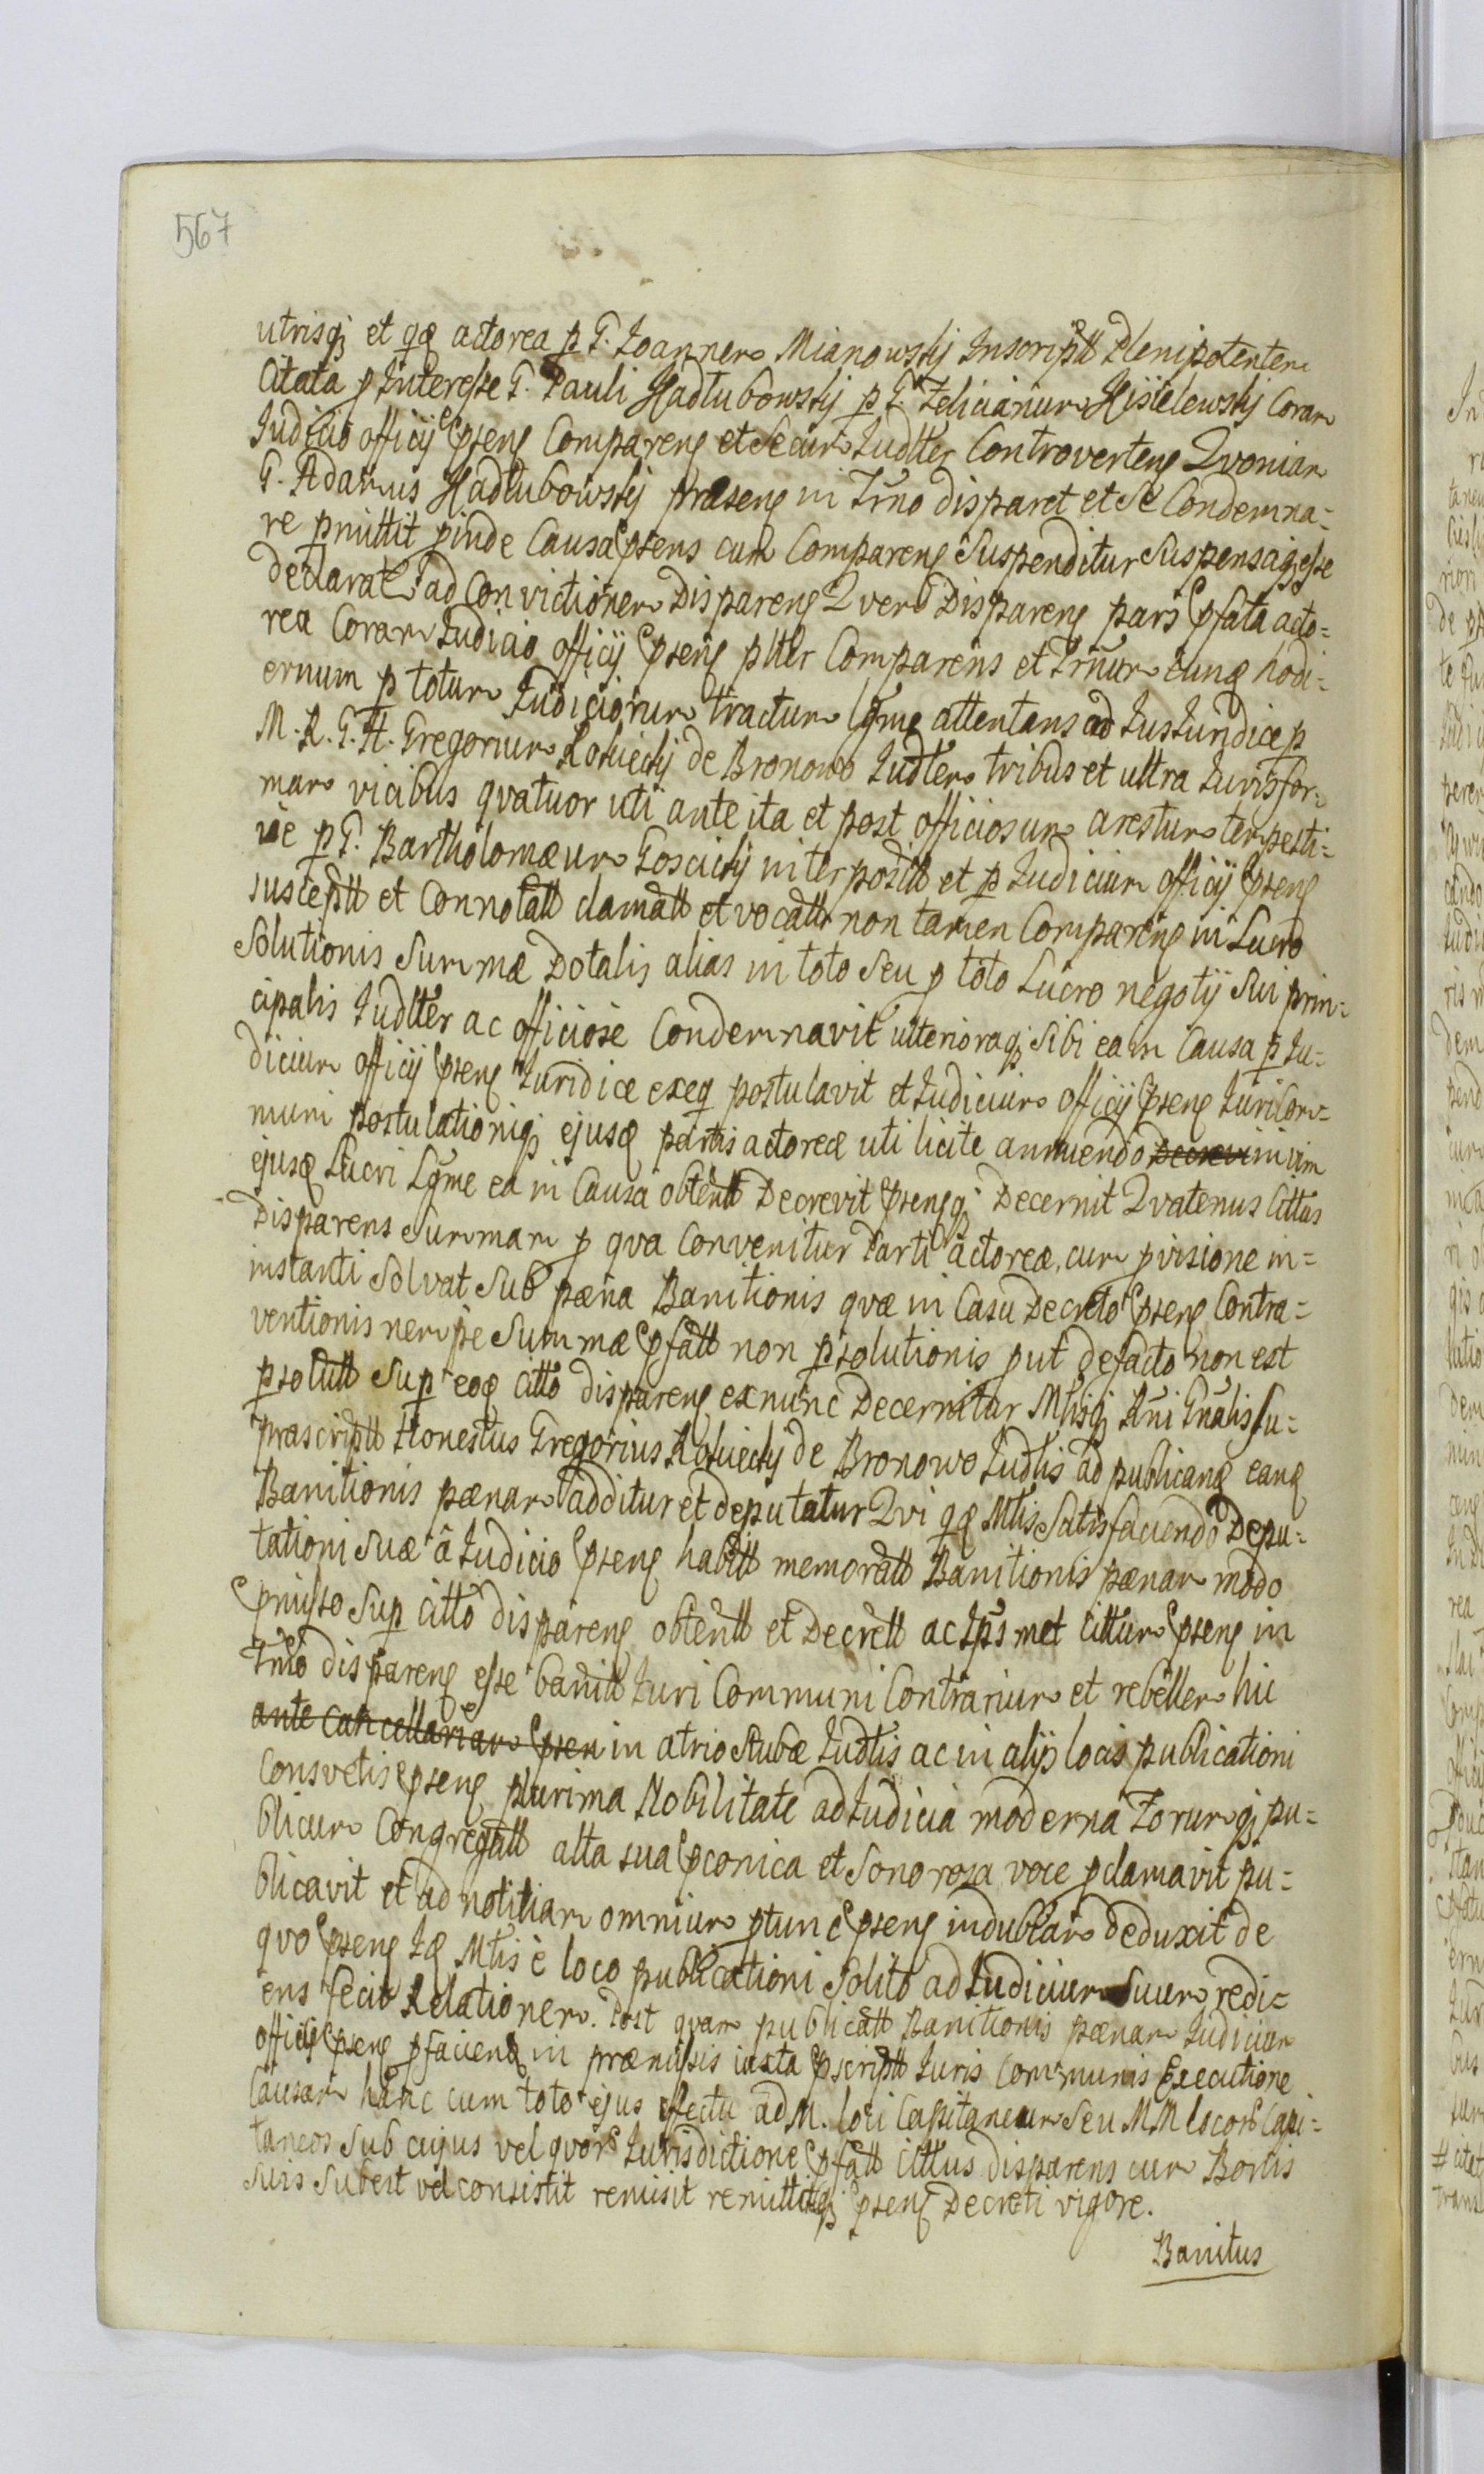 567
utrisq; et qd actorea p G. Joannem Mianowskj Inscriptt Plenipotentem
Citata p Interesse G. Pauli Hadlubowskj p G. Felicianum Kisielewskj Coram
Judicio officij psens Comparens et secum Judtter Controvertens Qvoniam
G. Adamus Hadlubowskj præsens in Trno disparet et se Condemna=
re pmittit pinde Causa psens cum Comparens Suspenditur Suspensaq; esse
declarat ad Convictionem Disparens Q vero Disparens pars pfata acto=
rea Coram Judicio officij psens ptter Comparens et Trnum eund hodi=
ernum p totum Judiciorum tractum lgme attentans ad Jus Jundice p
M. R. G. H. Gregorium Kotuieckj de Bronowo Judtlem tribus et ultra Juris for=
mam vicibus qvatuor uti ante ita et post officiosum arestum tempesti=
ve p G. Bartholomæum Goscickj interpositt et p Judicium officij psens
susceptt et Connotatt clamatt et vocattt non tamen Comparens in Lucro
Solutionis Summæ Dotalis alias in toto Seu p toto Lucro negotij Sui prin=
cipalis Judtter ac officiose Condemnavit ulterioraq; Sibi ea in Causa p Ju=
dicium officij psens Juridice exeq postulavit et Judicium officij psens Juri Com=
muni postulationiq; ejusd partis actoreæ uti licite annuendo Decrevi in vim
ejusd Lucri Lgme ea in Causa obtentt Decrevit psensq; Decernit Qvatenus Cittus
Disparens Summam p qva Convenitur Parti actoreæ, cum pvisione in=
instanti Solvat Sub pæna Banitionis qvæ in Casu Decreto psens Contra=
ventionis nempe Summæ pfatt non psolutionis put defacto non est
psolutt Sup eod citto disparens exnunc Decernitur Mtisq; Rni Gnalis su=
prascriptt Honestus Gregorius Kotuieckj de Bronowo Judtlis ad publicand eand
Banitionis pænam additur et deputatur Qvi qd Mtis Satisfaciendo Depu=
tationi Suæ â Judicio psens habitt memoratt Banitionis pænam modo
pmisso Sup citto disparens obtentt et Decrett ac Ipsmet cittum psens in
Trno disparens esse banitt Juri Communi Contrarium et rebellem hic
ante Cancellariam psen in atrio Stubæ Judtlis ac in alijs locis publicationi
Consvetis psens plurima Nobilitate ad Judicia moderna Forumq; pu=
blicum Congregatt alta sua pconica et Sonorosa voce pclamavit pu=
blicavit et ad notitiam omnium ptunc psens indubiam deduxit de
qvo psens Id Mtis è loco publicationi Solito ad Judicium Suum redi=
ens fecit Relationem. Post qvam publicatt Banitionis pænam Judicium
officij psens pfaciend in præmissis iuxta pscriptt Juris Communis Executione
Causam hanc cum toto ejus effectu ad M. loci Capitaneum Seu M M locor Capi=
taneos Sub cujus vel qvor Jurisdictione pfatt cittus disparens cum Bonis
suis Subest vel consistit remisit remittitq; psens Decreti vigore.
Banitus